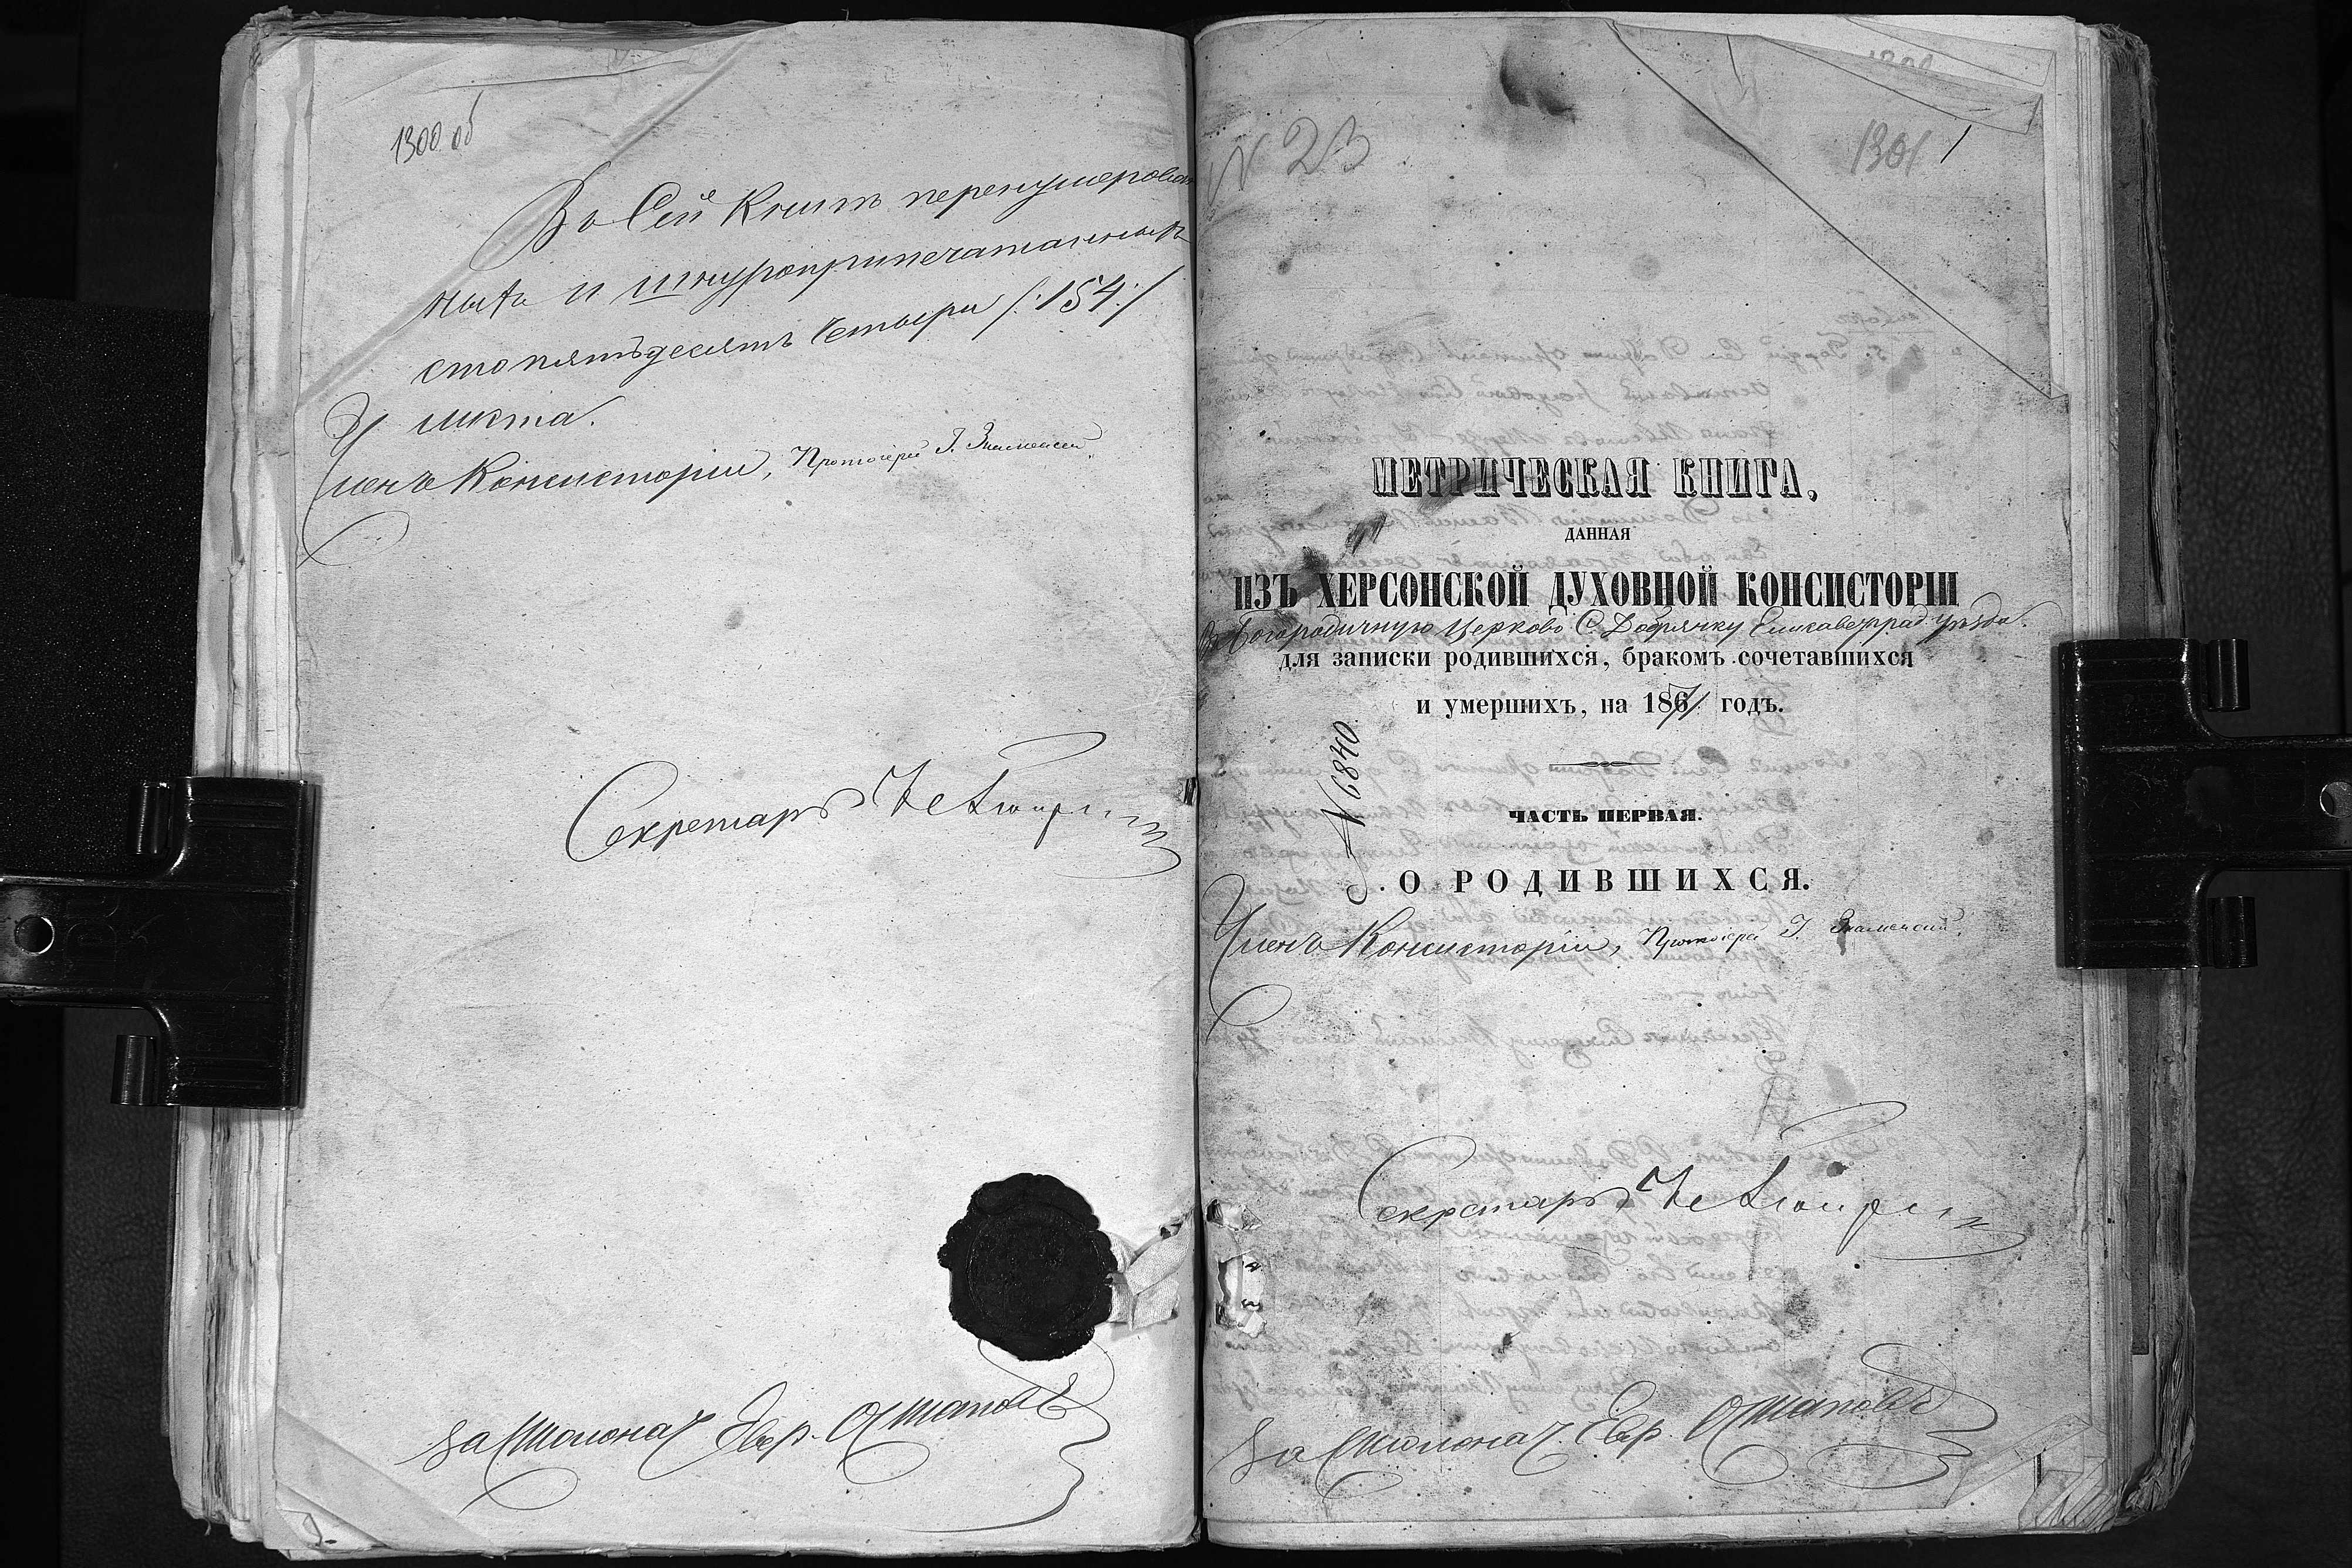 1300 об
Въ Сей Книгѣ перенумерован
ныхъ и шнуроприпечатанныхъ
сто пятьдесятъ четыре /:154:/
листа.
Членъ Консисторіи, Протоіерей Г. Знаменскій.
Секретарь
За Столонач. Евр. Остаповъ
N 23
1301 1
МЕТРИЧЕСКАЯ КНИГА,
ДАННАЯ
ИЗЪ ХЕРСОНСКОЙ ДУХОВНОЙ КОНСИСТОРІИ
Въ Богородичную Церковь С. Добрянку Елисаветград. уѣзда.
для записки родившихся, бракомъ сочетавшихся
и умершихъ, на 1871 годъ.
N 6840
ЧАСТЬ ПЕРВАЯ.
О РОДИВШИХСЯ.
Членъ Консисторіи, Протоіерей Г. Знаменскій.
Секретарь
За Столонач. Евр. Остаповъ